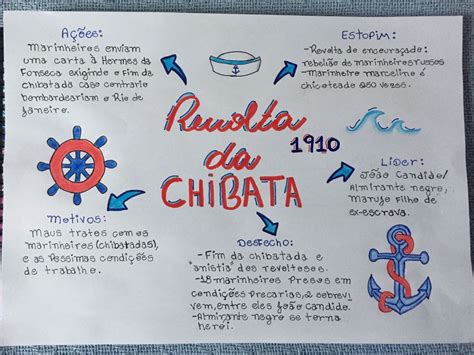 Ações:
Marinheiros enviam
uma carta à Hermes da
Fonseca exigindo o fim da
chibatada caso contrario
bombardeariam o Rio de
Janeiro.
Estopim:
- Revolta de encouraçado:
rebelião de marinheiros russos
- Marinheiro marcelino é
chicoteado 250 vezes.
Revolta
da
CHIBATA
1910
Líder:
João Candido/
Almirante negro,
Marujo filho de
ex-escrava.
Motivos:
Maus tratos com os
marinheiros (chibatadas),
e as Péssimas condições
de trabalho.
Desfecho:
- Fim da chibatada e
"anistia" dos revoltosos.
- 18 marinheiros Presos em
condições Precarias, 2 sobrevi
vem, entre eles João Candido.
- Almirante negro se torna
herói.